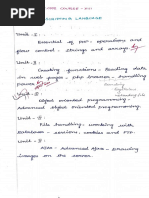 CORE COURSE - XII
LANGUAGE
Unit - I :
Essential of PHP - Operations and
flow control - strings and arrays
Unit - II :
Creating functions - Reading data
in web pages - PHP browser - handling
power
Unit - III :
Object oriented programming -
Advanced object oriented programming.
Unit - IV :
File handling - working with
database - sessions, cookies and FTP.
Unit - V :
Ajax - Advanced Ajax - Drawing
images on the server.